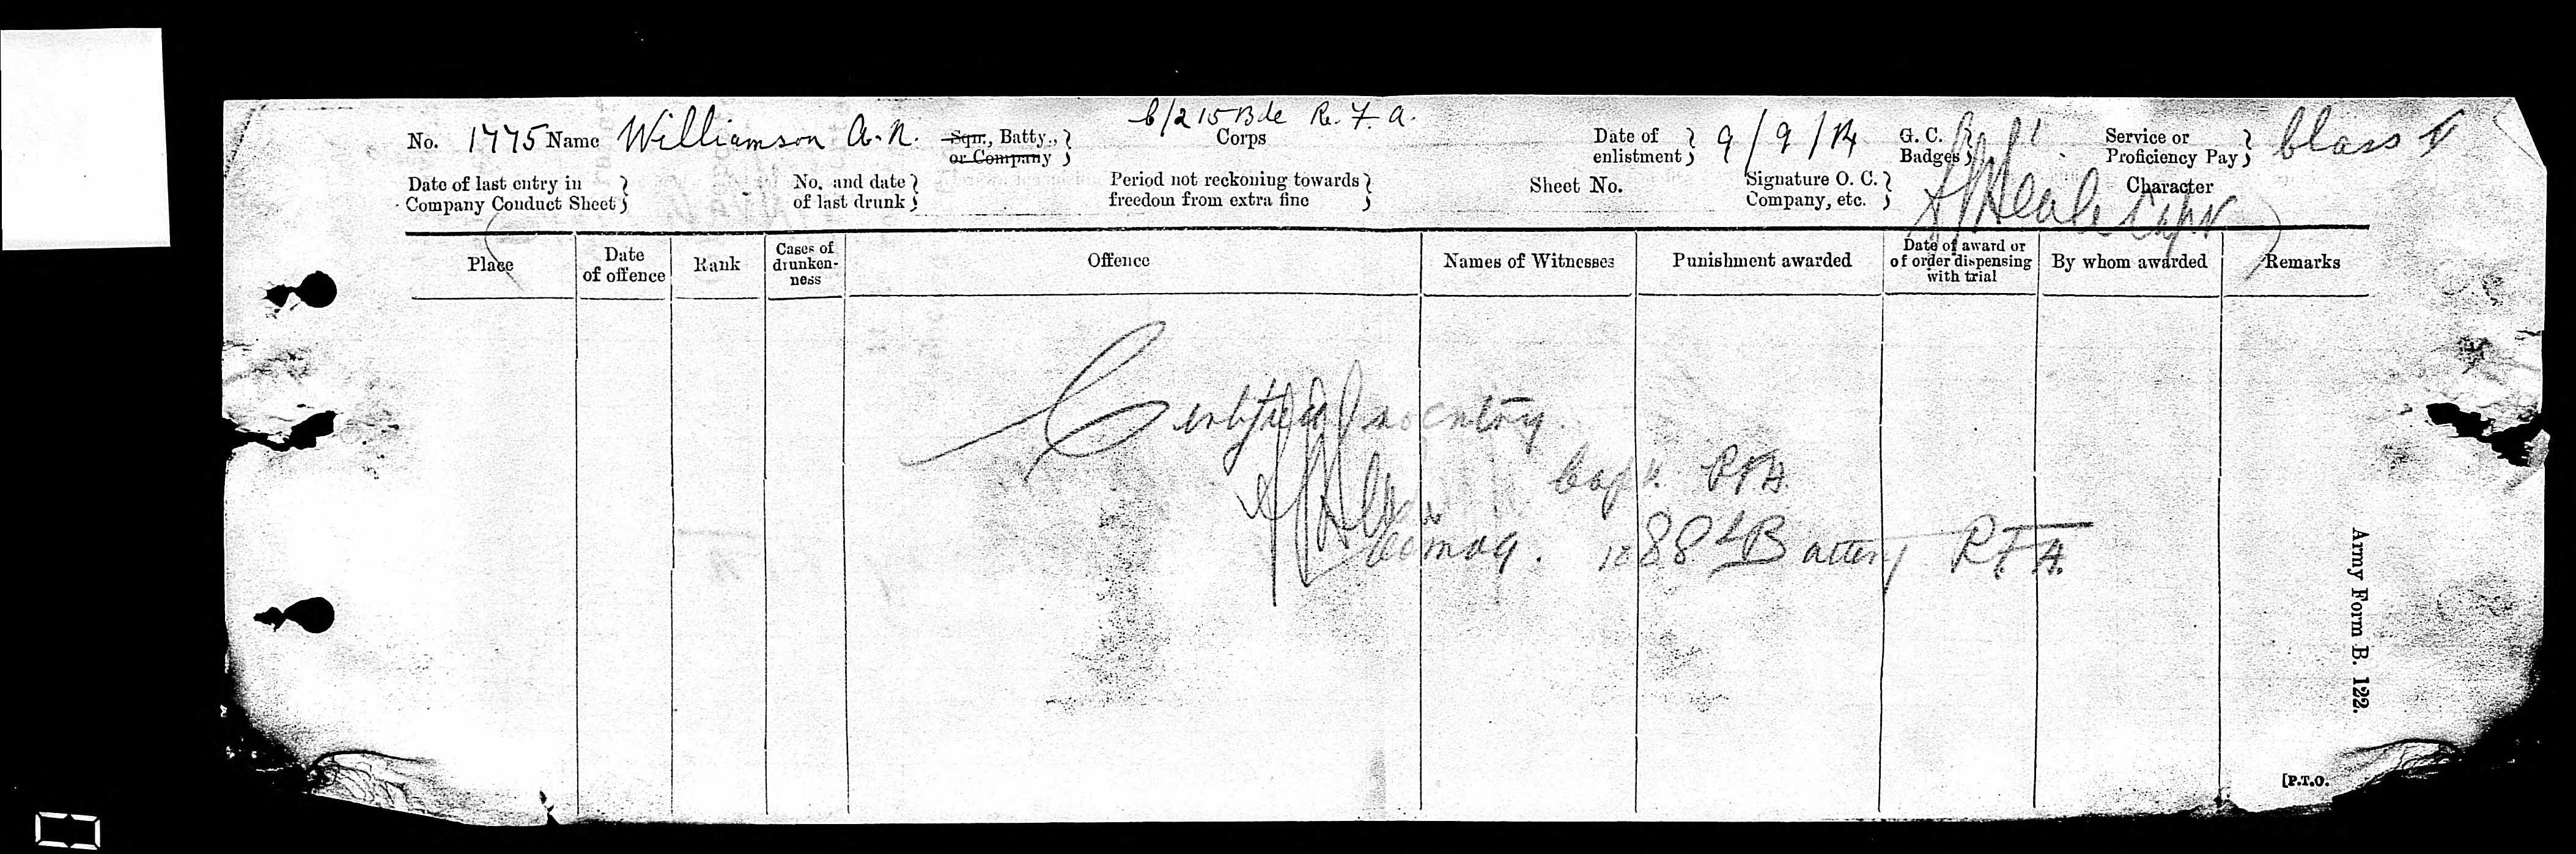 C/215 Bde R. F. A.
No. 1775 Name Williamson A. N. Sqn., Batty., or Company } Corps Date of enlistment } 9/9/14 G. C. Badges } Service or Proficiency Pay } Class 1
Date of last entry in Company Conduct Sheet } No. and date of last drunk } Period not reckoning towards freedom from extra fine } Sheet No. Signature O. C. Company, etc. } Capt Character
Place Date of offence Rank Cases of drunkenness Offence Names of Witnesses Punishment awarded Date of award or of order dispensing with trial By whom awarded Remarks
Certified no entry.
Capt. RFA.
Comdg. 1088th Battery R.F.A.
Army Form B. 122.
[P.T.O.